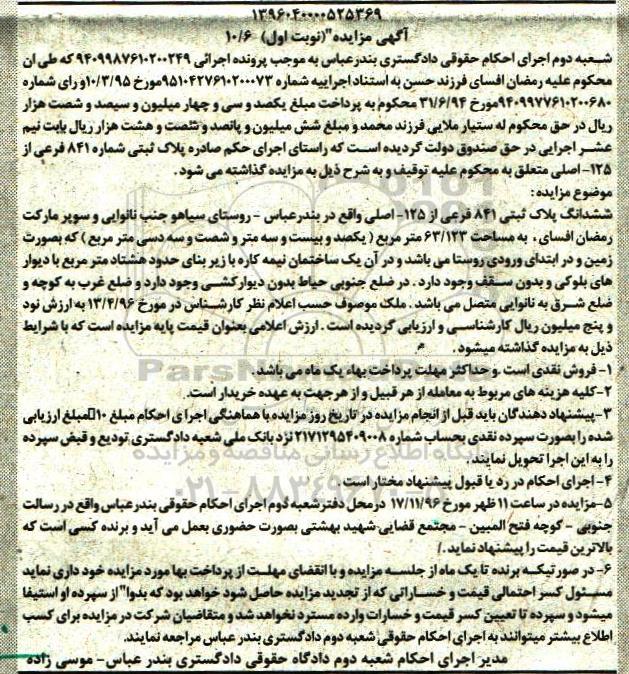 ۱۳۹۶۰۴۰۰۰۰۵۲۵۳۶۹
آگهی مزایده"(نوبت اول) ۱۰/۶
شعبه دوم اجرای احکام حقوقی دادگستری بندرعباس به موجب پرونده اجرائی ۹۴۰۹۹۸۷۶۱۰۲۰۰۲۴۹ که طی ان
محکوم علیه رمضان افسای فرزند حسن به استناد اجراییه شماره ۹۵۱۰۴۲۷۶۱۰۲۰۰۰۷۳مورخ ۱۰/۳/۹۵و رای شماره
۹۴۰۹۹۷۷۶۱۰۲۰۰۶۸۰مورخ ۳۱/۶/۹۴ محکوم به پرداخت مبلغ یکصد و سی و چهار میلیون و سیصد و شصت هزار
ریال در حق محکوم له ستیار ملایی فرزند محمد و مبلغ شش میلیون و پانصد و شصت و هشت هزار ریال بابت نیم
عشر اجرایی در حق صندوق دولت گردیده است که راستای اجرای حکم صادره پلاک ثبتی شماره ۸۴۱ فرعی از
۱۲۵- اصلی متعلق به محکوم علیه توقیف و به شرح ذیل به مزایده گذاشته می شود .
موضوع مزایده :
ششدانگ پلاک ثبتی ۸۴۱ فرعی از ۱۲۵- اصلی واقع در بندرعباس - روستای سیاهو جنب نانوایی و سوپر مارکت
رمضان افسای ، به مساحت ۶۳/۱۲۳ متر مربع ( یکصد و بیست و سه متر و شصت و سه دسی متر مربع ) که بصورت
زمین و در ابتدای ورودی روستا می باشد و در آن یک ساختمان نیمه کاره با زیر بنای حدود هشتاد متر مربع با دیوار
های بلوکی و بدون سقف وجود دارد . در ضلع جنوبی حیاط بدون دیوارکشی وجود دارد و ضلع غرب به کوچه و
ضلع شرق به نانوایی متصل می باشد . ملک موصوف حسب اعلام نظر کارشناس در مورخ ۱۳/۴/۹۶ به ارزش نود
و پنج میلیون ریال کارشناسی و ارزیابی گردیده است . ارزش اعلامی بعنوان قیمت پایه مزایده است که با شرایط
ذیل به مزایده گذاشته میشود .
۱- فروش نقدی است .و حداکثر مهلت پرداخت بهاء یک ماه می باشد .
۲-کلیه هزینه های مربوط به معامله از هر قبیل و از هرجهت به عهده خریدار است.
۳-پیشنهاد دهندگان باید قبل از انجام مزایده در تاریخ روز مزایده با هماهنگی اجرای احکام مبلغ ۱۰٪مبلغ ارزیابی
شده را بصورت سپرده نقدی بحساب شماره ۲۱۷۱۲۹۵۴۰۹۰۰۸ نزد بانک ملی شعبه دادگستری تودیع و قبض سپرده
را به این اجرا تحویل نمایند.
۴- اجرای احکام در رد یا قبول پیشنهاد مختار است .
۵-مزایده در ساعت ۱۱ ظهر مورخ ۱۷/۱۱/۹۶ درمحل دفتر شعبه دوم اجرای احکام حقوقی بندرعباس واقع در رسالت
جنوبی - کوچه فتح المبین - مجتمع قضایی شهید بهشتی بصورت حضوری بعمل می آید و برنده کسی است که
بالاترین قیمت را پیشنهاد نماید ./
۶- در صورتیکه برنده تا یک ماه از جلسه مزایده و با انقضای مهلت از پرداخت بها مورد مزایده خود داری نماید
مسئول کسر احتمالی قیمت و خساراتی که از تجدید مزایده حاصل شود خواهد بود که بدوا" از سپرده او استیفا
میشود و سپرده تا تعیین کسر قیمت و خسارات وارده مسترد نخواهد شد و متقاضیان شرکت در مزایده برای کسب
اطلاع بیشتر میتوانند به اجرای احکام حقوقی شعبه دوم دادگستری بندر عباس مراجعه نمایند.
مدیر اجرای احکام شعبه دوم دادگاه حقوقی دادگستری بندر عباس- موسی زاده